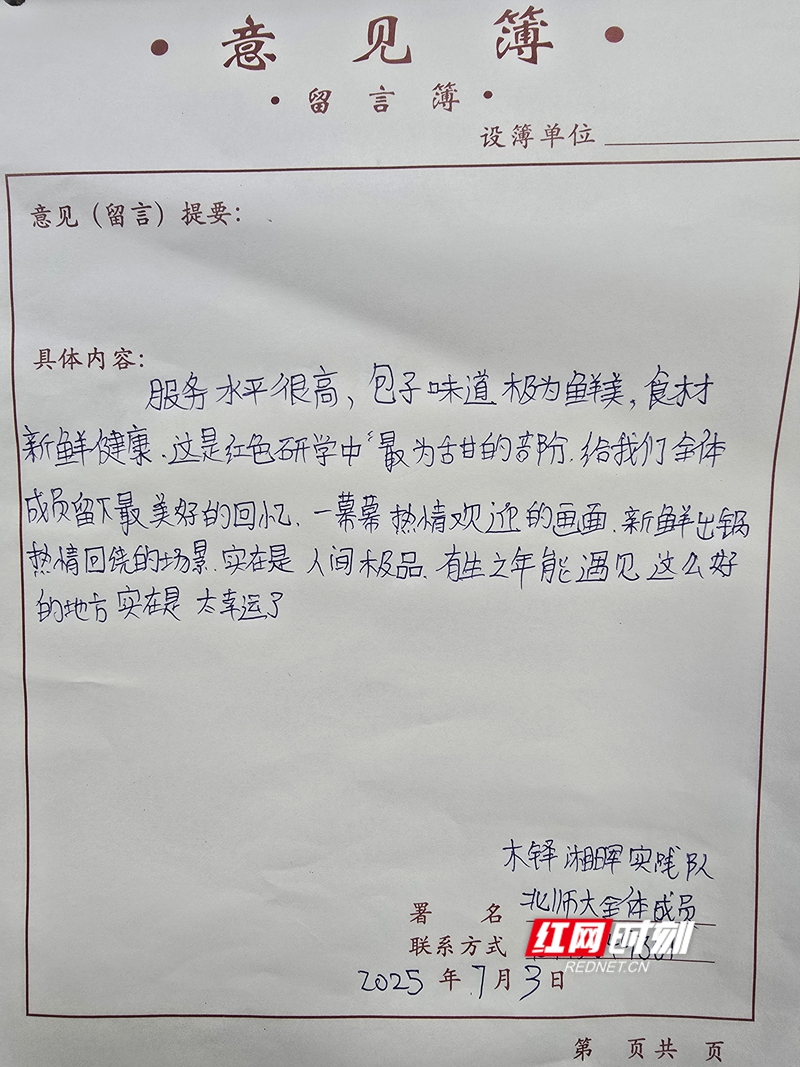 • 意见簿 •
• 留言簿 •
设簿单位
意见（留言）提要：
具体内容：
服务水平很高、包子味道极为鲜美，食材
新鲜健康、这是红色研学中最为甜的部份、给我们全体
成员留下最美好的回忆、一幕幕热情欢迎的画面、新鲜出锅
热情回绕的场景、实在是人间极品、有生之年能遇见这么好
的地方实在是太幸运了
木铎湘晖实践队
署名 北师大全体成员
联系方式
红网时刻
REDNET.CN
2025年7月3日
第 页共 页